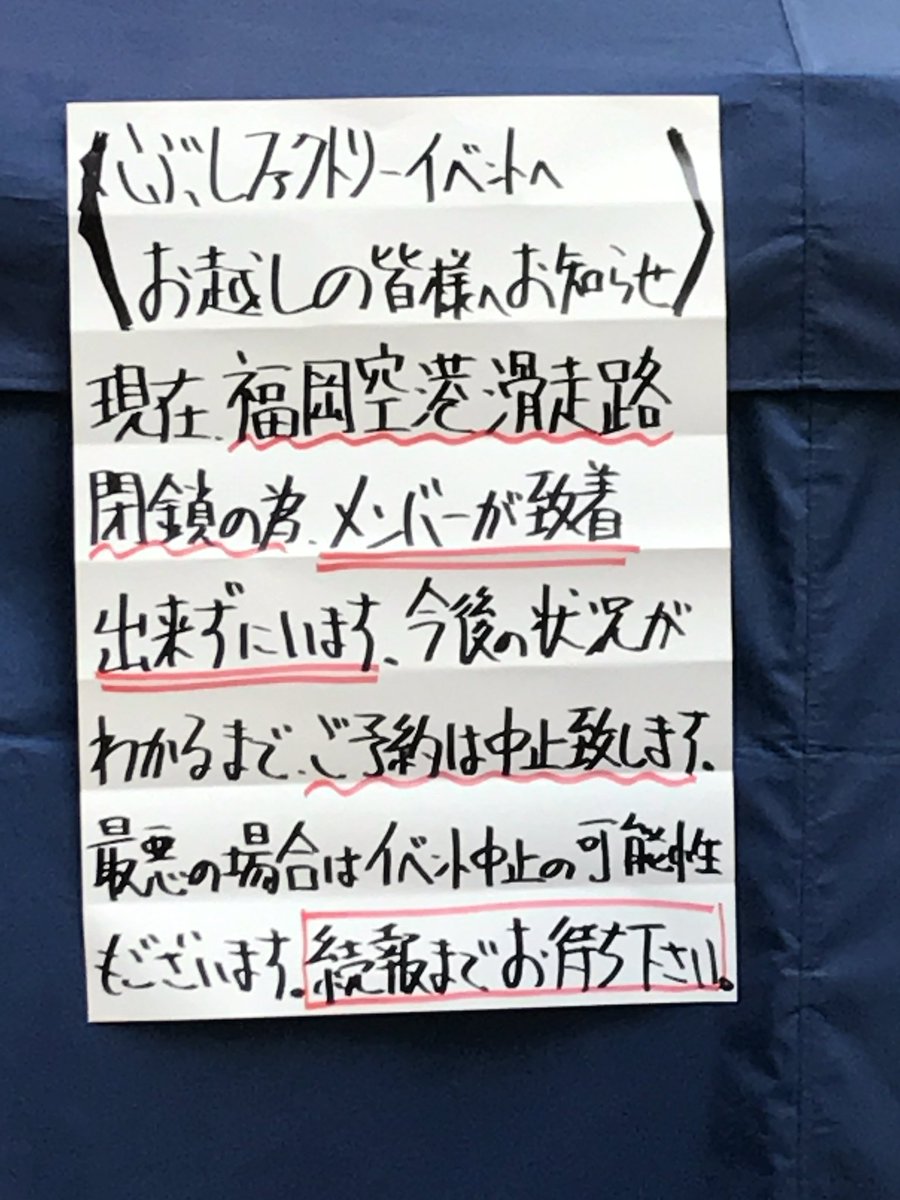 〈こぶしファクトリーイベントへ
お越しの皆様へお知らせ〉
現在、福岡空港滑走路
閉鎖の為、メンバーが到着
出来ずにいます、今後の状況が
わかるまで、ご予約は中止致します。
最悪の場合はイベント中止の可能性
もございます。続報までお待ち下さい。